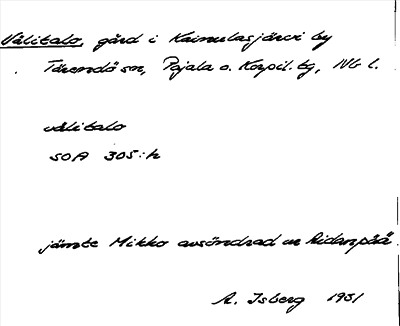 Välitalo, gård i Kainulasjärvi by
Tärendö sn, Pajala o. Korpil. tg, Nb l.
välitalo
SOA 305:h
jämte Mikko avsöndrad ur Ridanpää
A. Isberg 1931